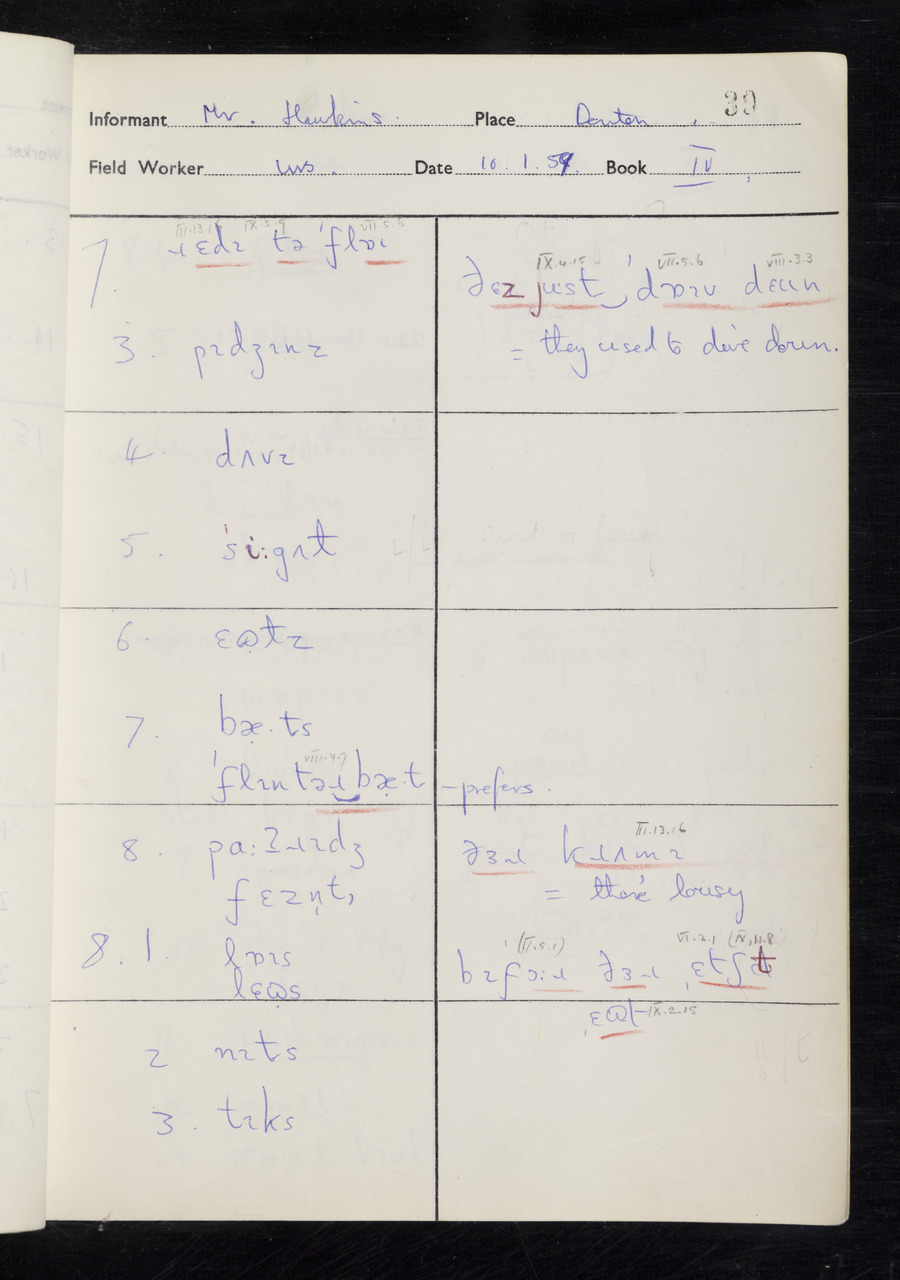 39
Informant Mr. Hawkins. Place Denton.
Field Worker WS. Date 10.1.57. Book IV
III.13.1 IX.5.9 VII.5.6
7. ɹɛdɪ tə ˈflɒɪ
3. pɪdʒɪnz
4. dʌvz
5. ˈsi:gʌt
6. ɛɷtz
7. bæ·ts
VIII.4.7
ˈflɪntəɹ‿bæ·t – prefers.
8. pa:ʔɹɪdʒ
fɛzn̩t,
8.1. lɒɪs
lɛɷs
2 nɪts
3. tɪks
IX.4.15 VII.5.6 VIII.3.3
ðɛz ju:st‿ˈdɒɪv dɛun
= they used to dive down.
III.13.16
ðɜɹ kɹʌmɪ
= there lousy
(II.5.1) VI.2.1 (IV.11.8
bɪfɔ:ɹ ðɜɹ ˌɛtʃt
ˌɛɷt IX.2.15